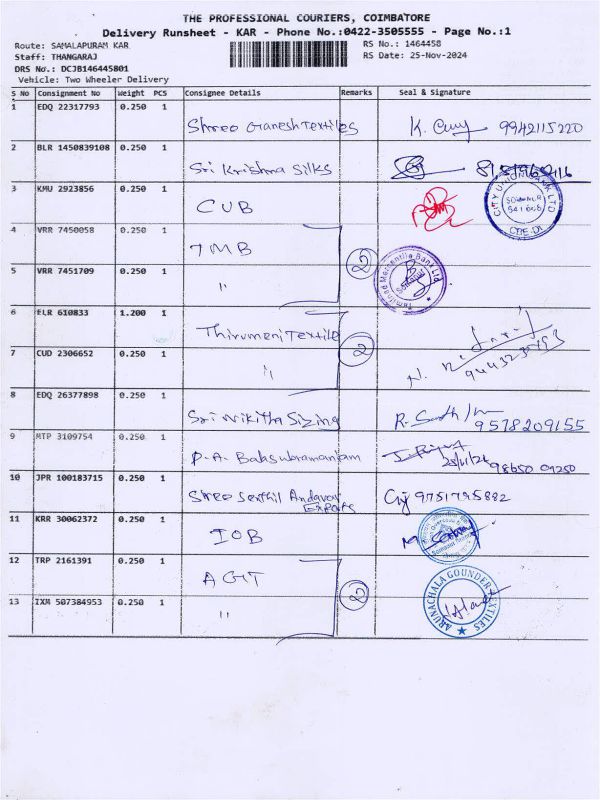 THE PROFESSIONAL COURIERS, COIMBATORE
Delivery Runsheet - KAR - Phone No.:0422-3505555 - Page No.:1
Route: SAMALAPURAM KAR RS No.: 1464458
Staff: THANGARAJ RS Date: 25-Nov-2024
DRS No.: DCJB146445801
Vehicle: Two Wheeler Delivery
S No Consignment No Weight PCS Consignee Details Remarks Seal & Signature
1 EDQ 22317793 0.250 1
Shree Ganesh Textiles 9942115220
2 BLR 1450839108 0.250 1
Sri Krishna Silks
3 KMU 2923856 0.250 1
CUB CITY UNION BANK LTD
4 VRR 7450058 0.250 1
TMB 2 Tamilnad Mercantile Bank Ltd
5 VRR 7451709 0.250 1
"
6 ELR 610833 1.200 1
Thirumeni Textile 2
7 CUD 2306652 0.250 1
"
8 EDQ 26377898 0.250 1
Sri Nikitha Sizing 9578209155
9 MTP 3109754 0.250 1
P.A. Balasubramaniam
10 JPR 100183715 0.250 1
Shree Senthil Andavar 9751795882
Exports
11 KRR 30062372 0.250 1
IOB
12 TRP 2161391 0.250 1
AGT 2 ARUNACHALA GOUNDER TEXTILES
13 IXM 507384953 0.250 1
"